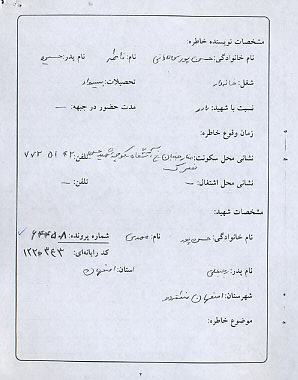 مشخصات نویسنده خاطره:
نام خانوادگی: حسن پور نام: فاطمه نام پدر: حسین
شغل: خانه دار تحصیلات: بیسواد
نسبت با شهید: مادر مدت حضور در جبهه: —
زمان وقوع خاطره:
نشانی محل سکونت: تلفن: ۷۷۲ ۵۱ ۴۲
نشانی محل اشتغال: — تلفن: —
مشخصات شهید:
نام خانوادگی: حسن پور نام: مهدی شماره پرونده: ۶۴۴۵۰۸
کد رایانه‌ای: ۱۲۲۰۳۴۳
نام پدر: استان: اصفهان
شهرستان: اصفهان
موضوع خاطره:
۲